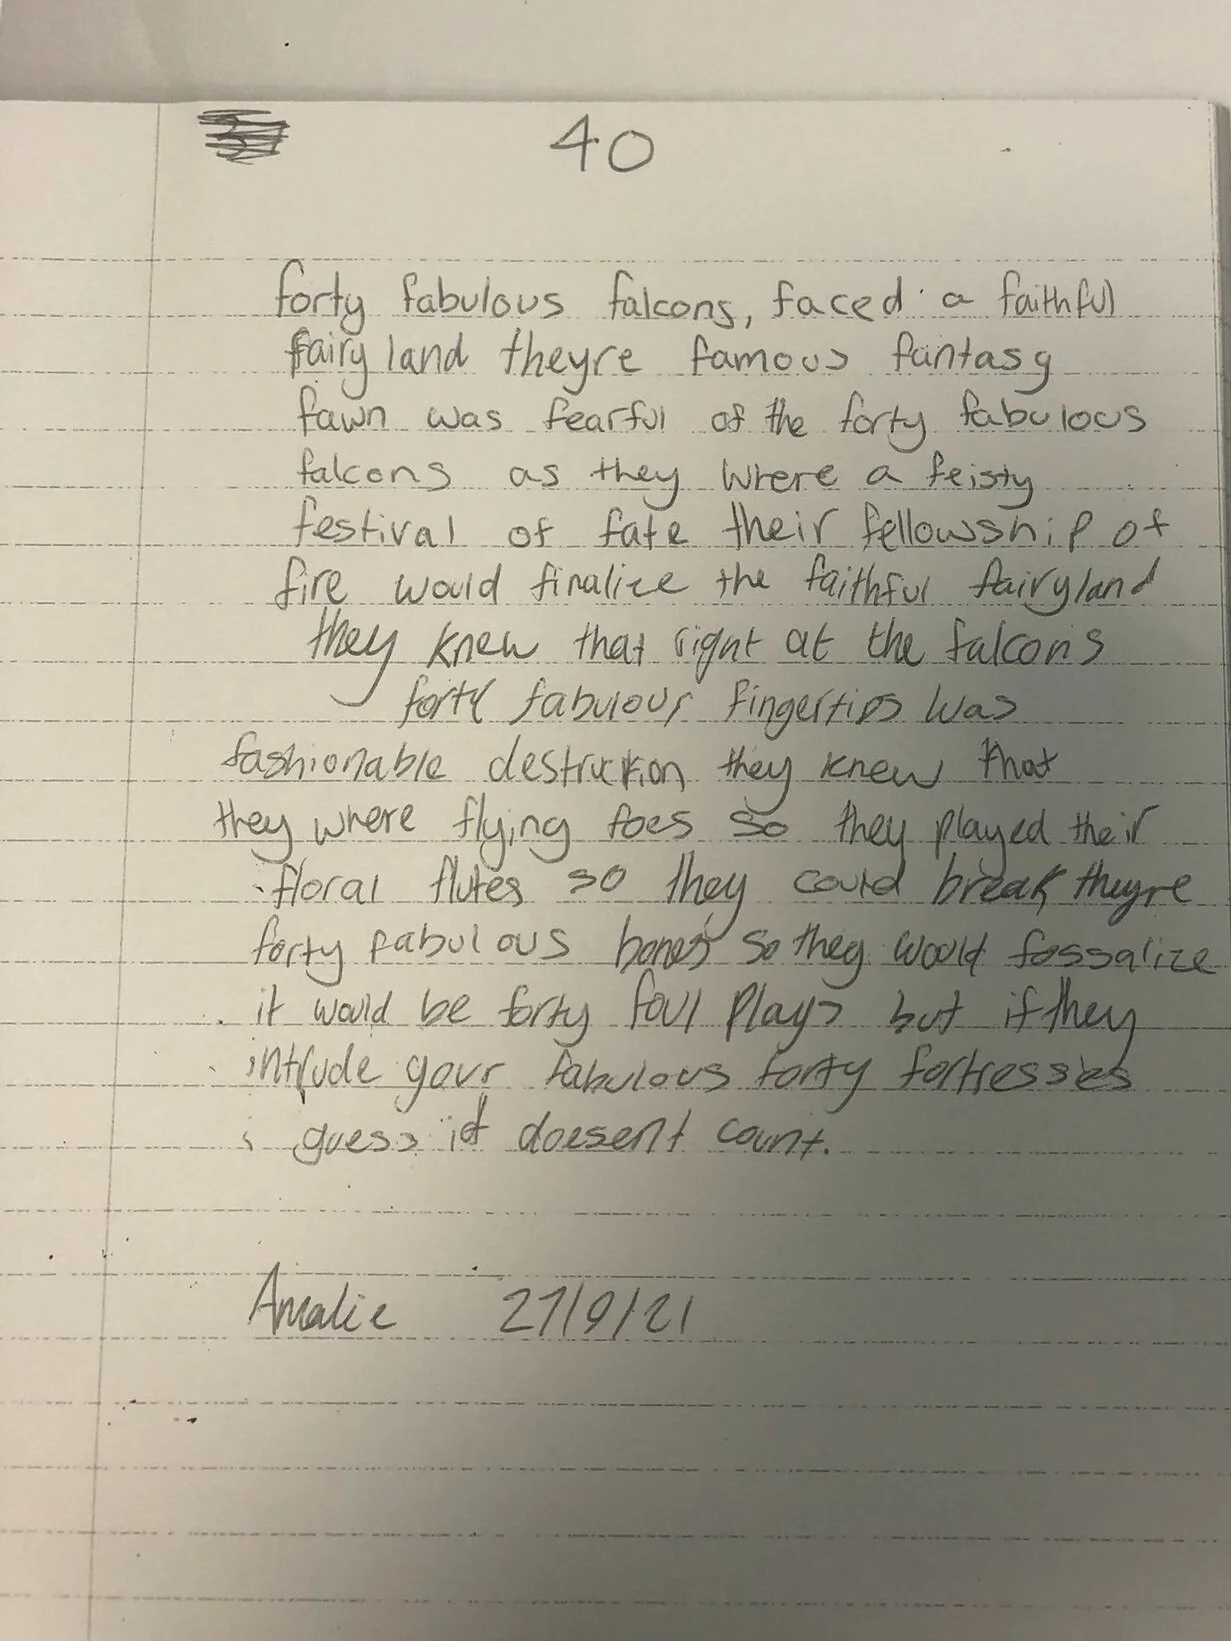 40
forty fabulous falcons, faced a faithful
fairyland theyre famous fantasy
fawn was fearful of the forty fabulous
falcons as they where a feisty
festival of fate their fellowship of
fire would finalize the faithful fairyland
they knew that right at the falcons
forty fabulous fingertips was
fashionable destruction they knew that
they where flying foes so they played their
floral flutes so they could break theyre
forty fabulous bones so they would fossalize
it would be forty foul plays but if they
intrude your fabulous forty fortresses
i guess it doesent count.
Amalie 27/9/21